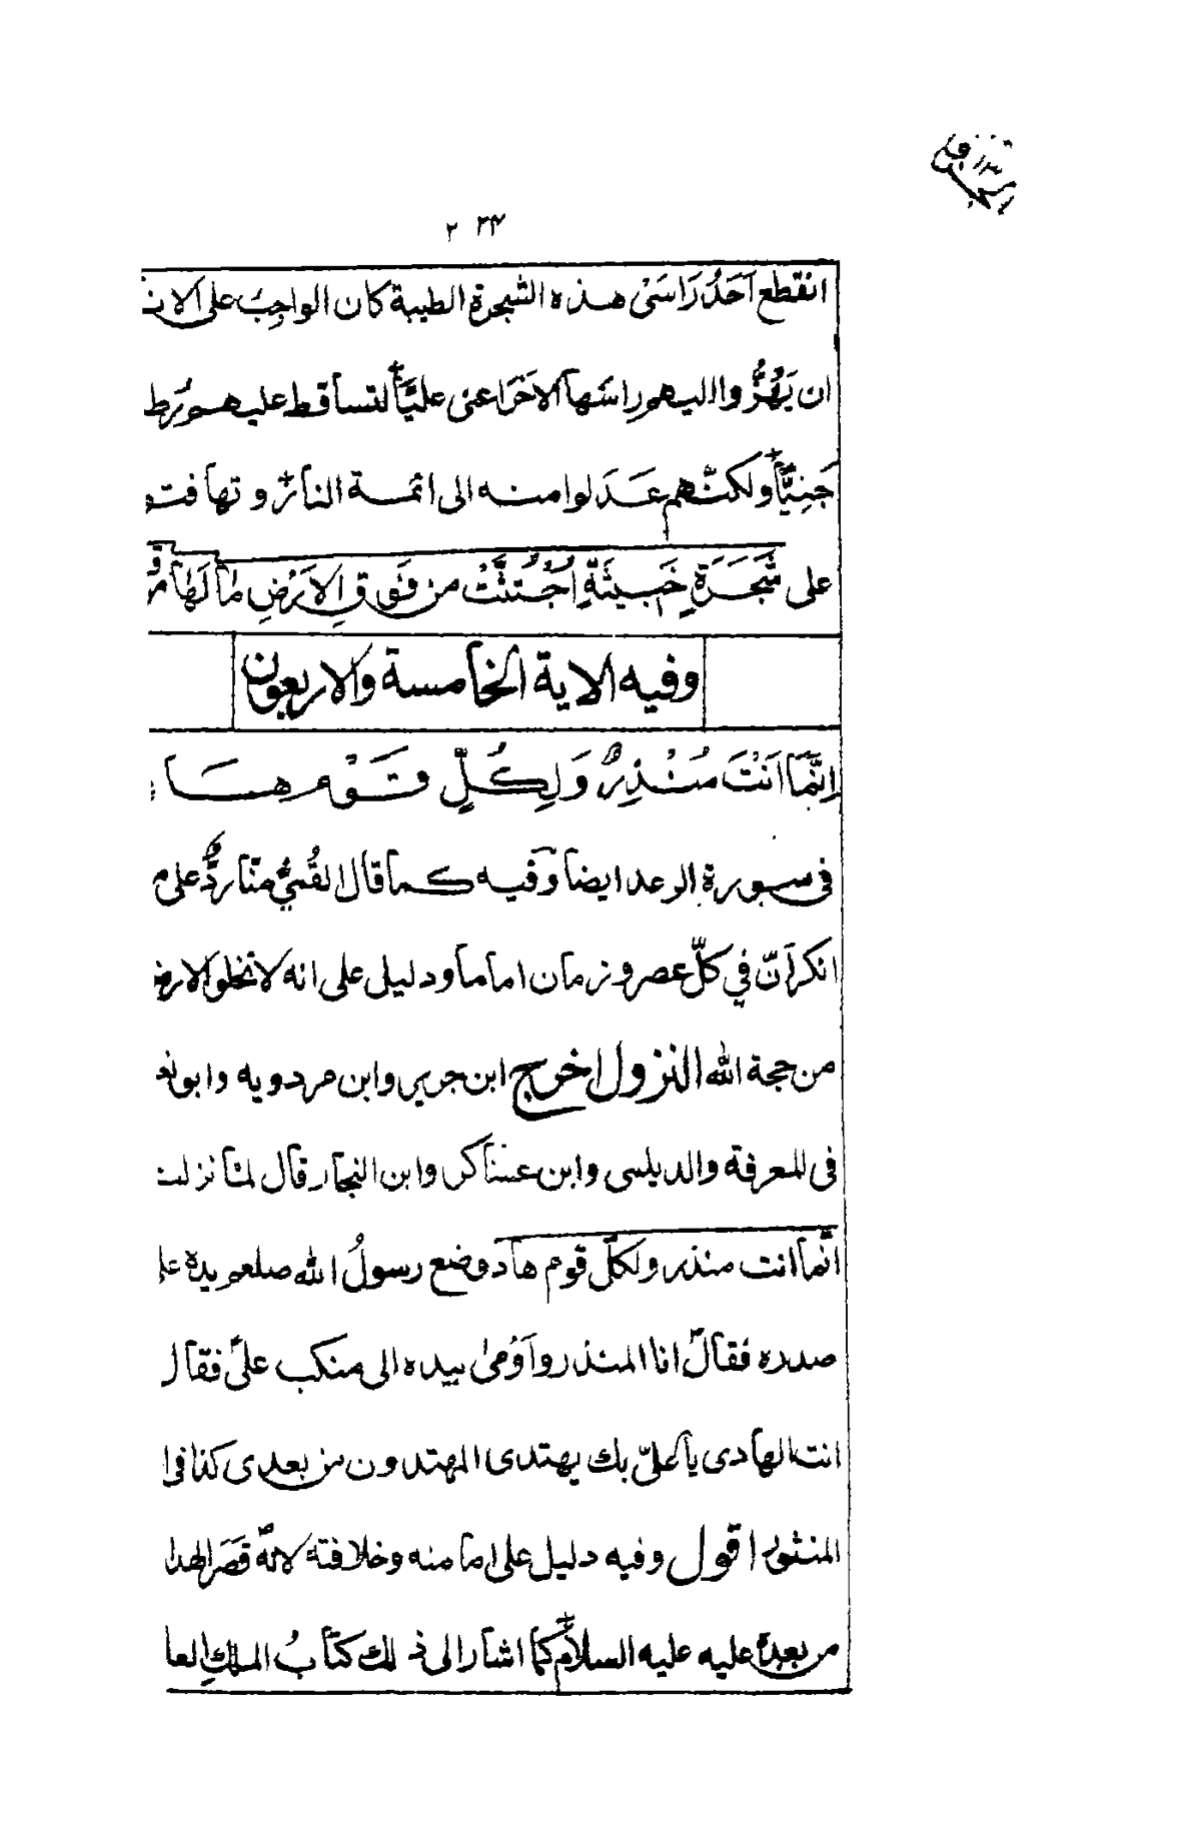 ٢ ٢٤
انقطع اَحَدُ رَاسَىْ هذه الشجرة الطيبة كان الواجب على
ان يَهُزُّوا اليهم راسَها الاخَرَ اعنى عليّاً لتساقط عليهم
جَنِيًّا ولكنّهم عَدَلوا منه الى ائمة النار و تهافتو
على شَجَرَةٍ خَبِيثَةٍ اجْتُثَّتْ من فَوْقِ الاَرْضِ مَا لَهَا
وفيه الاية الخامسة والاربعون
اِنَّمَا اَنْتَ مُنْذِرٌ وَلِكُلِّ قَوْمٍ هَا
فى سورة الرعد ايضا وَفيه كما قال القُمىُّ منّا ردٌّ على م
انكر اَنّ في كلّ عصر وزمان اماما ودليل على انه لا تخلو الارض
من حجة الله النزول اخرج ابن جرير وابن مردويه وابو نع
فى المعرفة والديلمى وابن عساكر وابن النجار قال لما نزلت
انّما انت منذر ولكلّ قوم هاد وضع رسولُ الله صلعم يده على
صدره فقال انا المنذر واَوْمىٰ بيده الى منكب علىّ فقال
انت الهادى يا علىّ بك يهتدى المهتدون من بعدى كذا فى ا
المنثور اقول وفيه دليل على امامته وخلافته لانّه قَصَر الهدا
من بعده عليه عليه السلام كما اشار الى ذلك كتابُ الملكِ العا